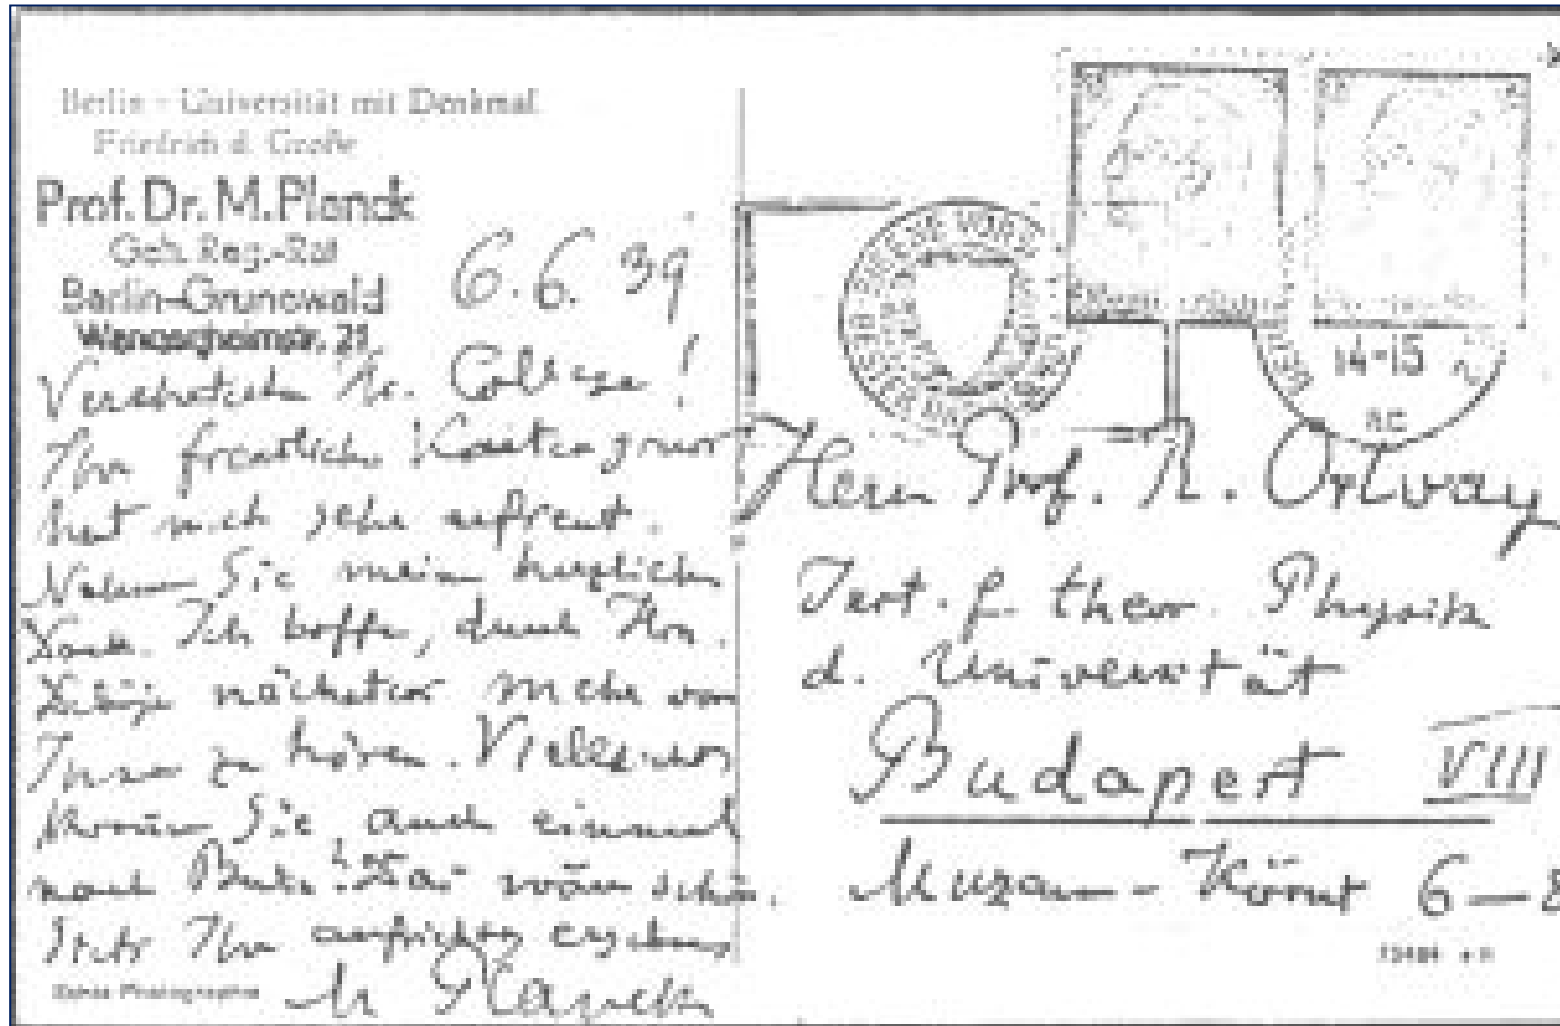 Berlin - Universität mit Denkmal
Friedrich d. Große
Prof. Dr. M. Planck
Geh. Reg.-Rat
Berlin-Grunewald
Wangenheimstr. 21
6.6.39
Verehrtester Hr. College!
Ihr freundlicher Kartengruss
hat mich sehr erfreut.
Nehmen Sie meinen herzlichen
Dank. Ich hoffe, durch Hrn.
nächstens mehr von
Ihnen zu hören. Vielleicht
kommen Sie auch einmal
nach Berlin? Das wäre schön.
Stets Ihr aufrichtig ergebener
M Planck
Echte Photographie
14-15
Herrn Prof. R. Ortvay
Inst. f. theor. Physik
d. Universität
Budapest VIII
Muzeum-Körut 6-8